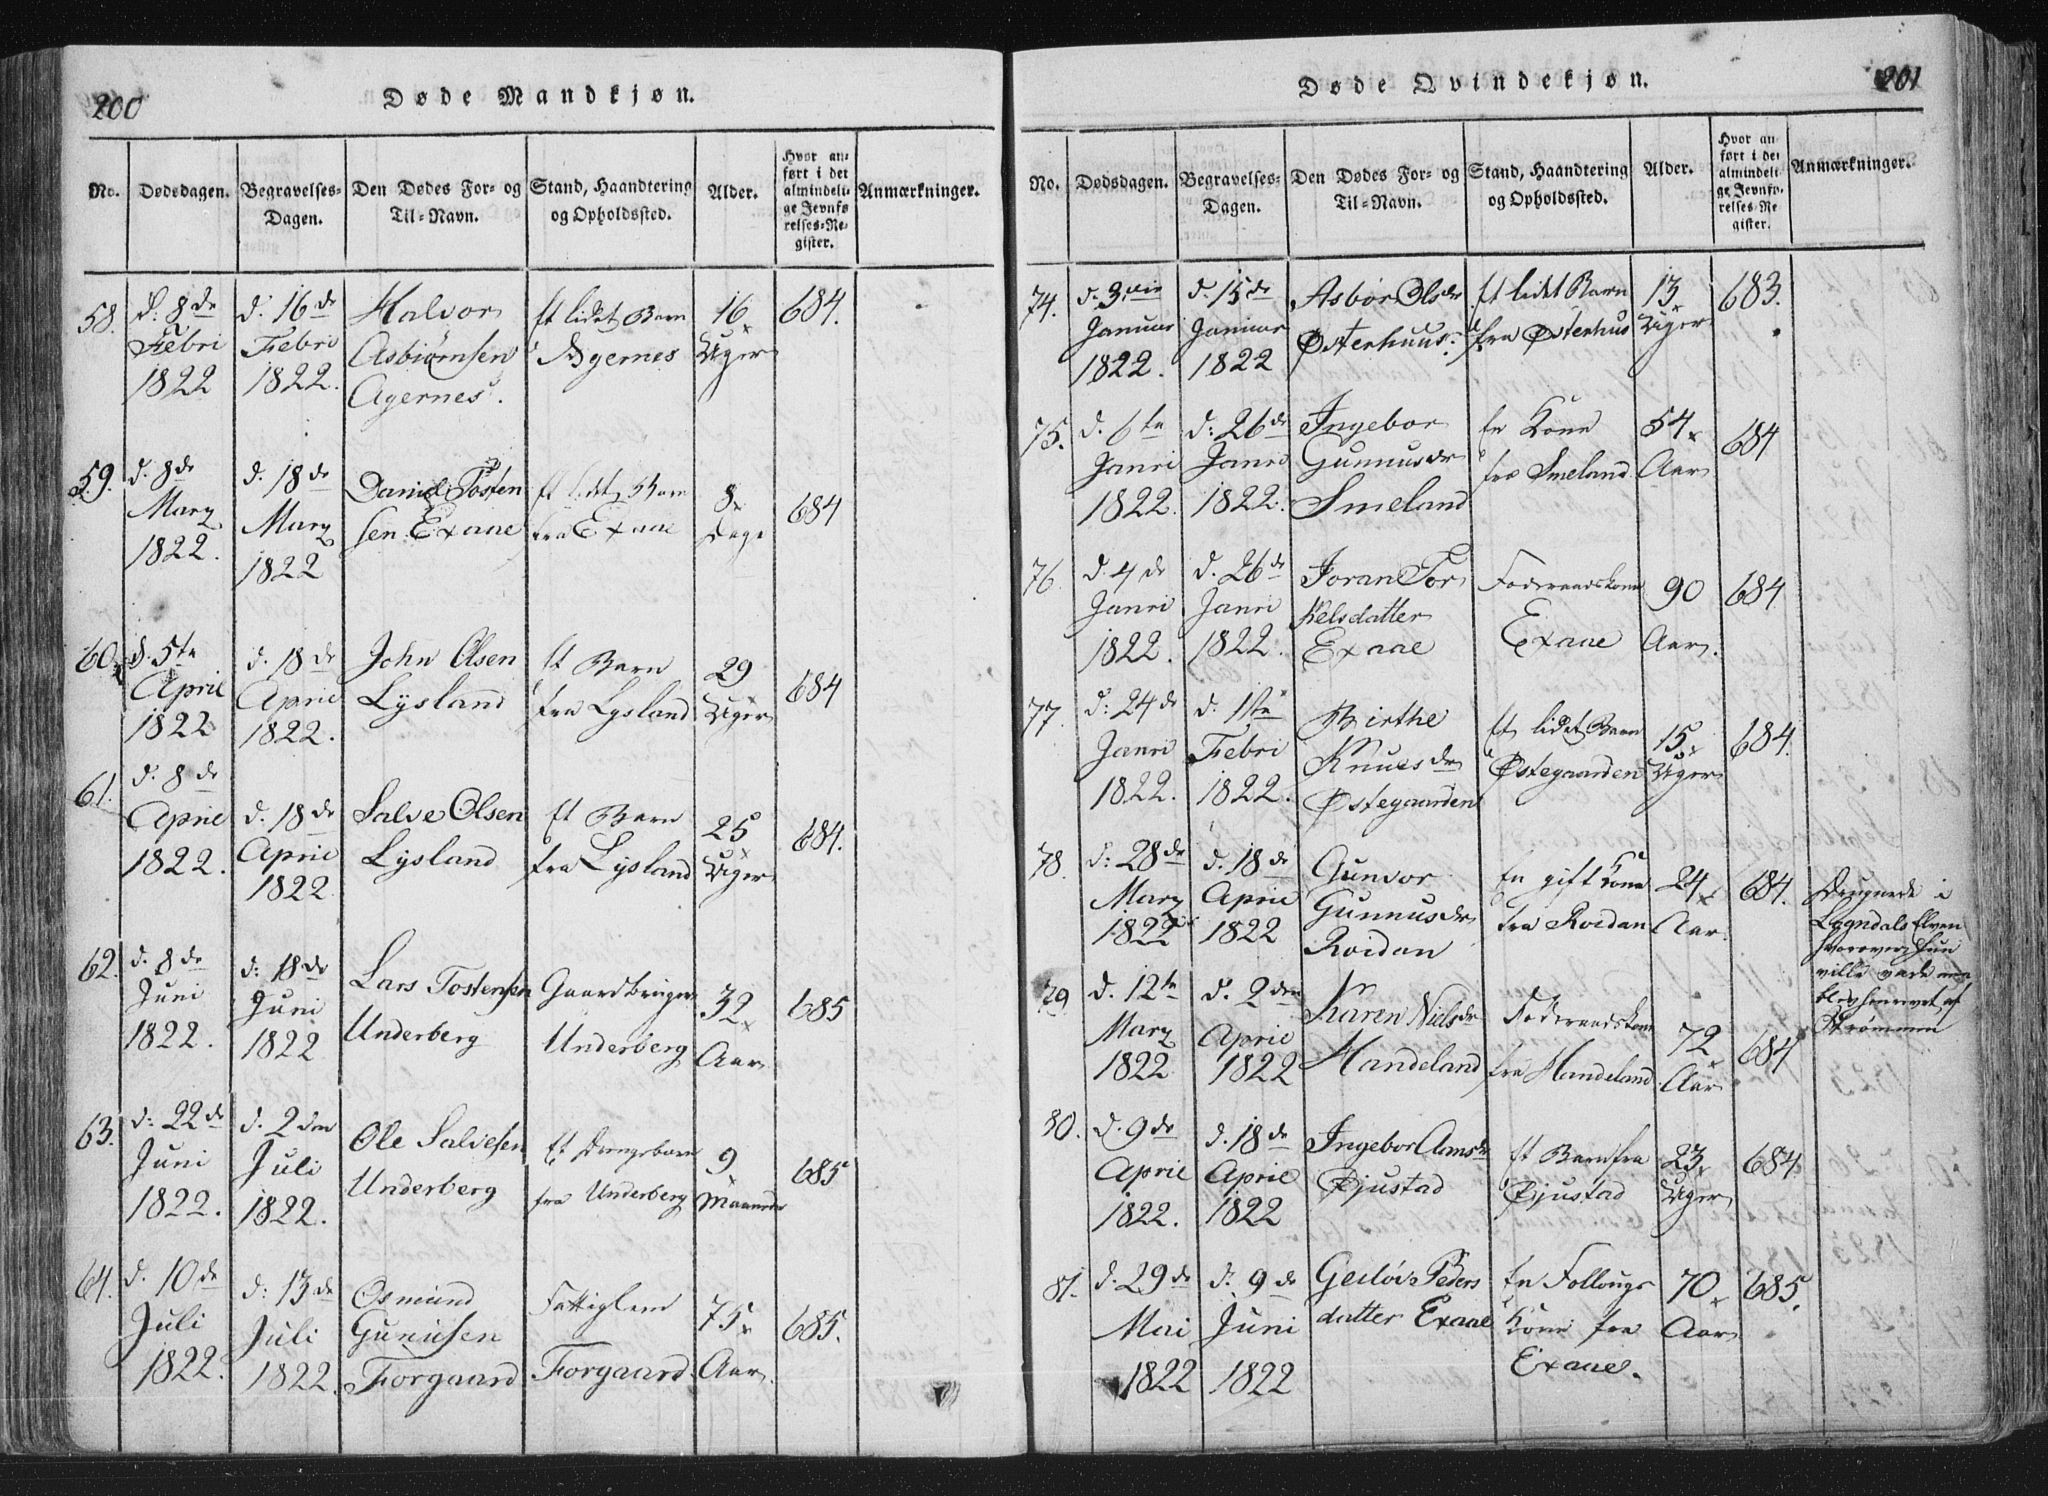 200
Døde Mandkjøn.
No. Dødsdagen. Begravelses-Dagen. Den Dødes For- og Til-Navn. Stand, Haandtering og Opholdssted. Alder. Hvor anført i det almindelige Jevnførelses-Register. Anmærkninger.
58. d. 8de Febri 1822 d. 16de Febri 1822. Halvor Asbiørnsen Agernes. Et lidet Barn Agernes 16 Uger 684.
59. d. 8de Marz 1822. d. 18de Marz 1822 Daniel Tosten sen Exaae Et lidet Barn fra Exaae 8 Dage 684
60. d. 5te April 1822 d. 18de April 1822. John Olsen Lysland Et Barn fra Lysland 29 Uger 684
61. d. 8de April 1822. d. 18de April 1822 Salve Olsen Lysland Et Barn fra Lysland 25 Uger 684.
62. d. 8de Juni 1822. d: 18de Juni 1822 Lars Tostensen Underberg Gaardbruger Underberg 32 Aar 685
63. d: 22de Juni 1822. d. 2den Juli 1822. Ole Salvesen Underberg Et Drengebarn fra Underberg 9 Maaneder 685
64. d. 10de Juli 1822. d: 13de Juli 1822. Osmund Gunusen Forgaard Fattiglem Forgaard. 75 Aar. 685.
201
Døde Qvindekjøn.
No. Dødsdagen. Begravelses-Dagen. Den Dødes For- og Til-Navn. Stand, Haandtering og Opholdssted. Alder. Hvor anført i det almindelige Jevnførelses-Register. Anmærkninger.
74. d. 3die Januar 1822. d. 15de Januar 1822 Asbor Olsdr Østerhuus. Et lidet Barn fra Østerhus 13 Uger 683.
75. d. 6te Janri 1822. d: 26de Janri 1822. Ingebor Gunnusdr Smeland En Kone fra Smeland 54 Aar 684
76. d. 4de Janri 1822. d. 26de Janri 1822. Joran Tor kelsdatter Exaae Foderaadskone Exaae 90 Aar. 684
77. d: 24de Janri 1822. d. 1ste Febri 1822. Birthe Knuesdr Østegaarden Et lidet Barn Østegaarden 15 Uger 684.
78. d: 28de Marz 1822 d. 18de April 1822 Gunvor Gunnusdr Roidan En gift Kone fra Roidan 24 Aar. 684. Drugnede i Lygndals Elven hvorover hun vilde vade men blev henrevet af Strømmen
79 d. 12te Marz 1822 d. 2den April 1822 Karen Nielsdr Handeland Foderaadskone fra Handeland 72 Aar 684
80. d. 9de April 1822. d. 18de April 1822 Ingebor Aamsdr Øjustad Et Barn fra Øjustad 23 Uger 684
81. d. 29de Mai 1822 d. 9de Juni 1822 Gesløv Peders datter Exaae En Kone fra Exaae. 70 Aar 685.